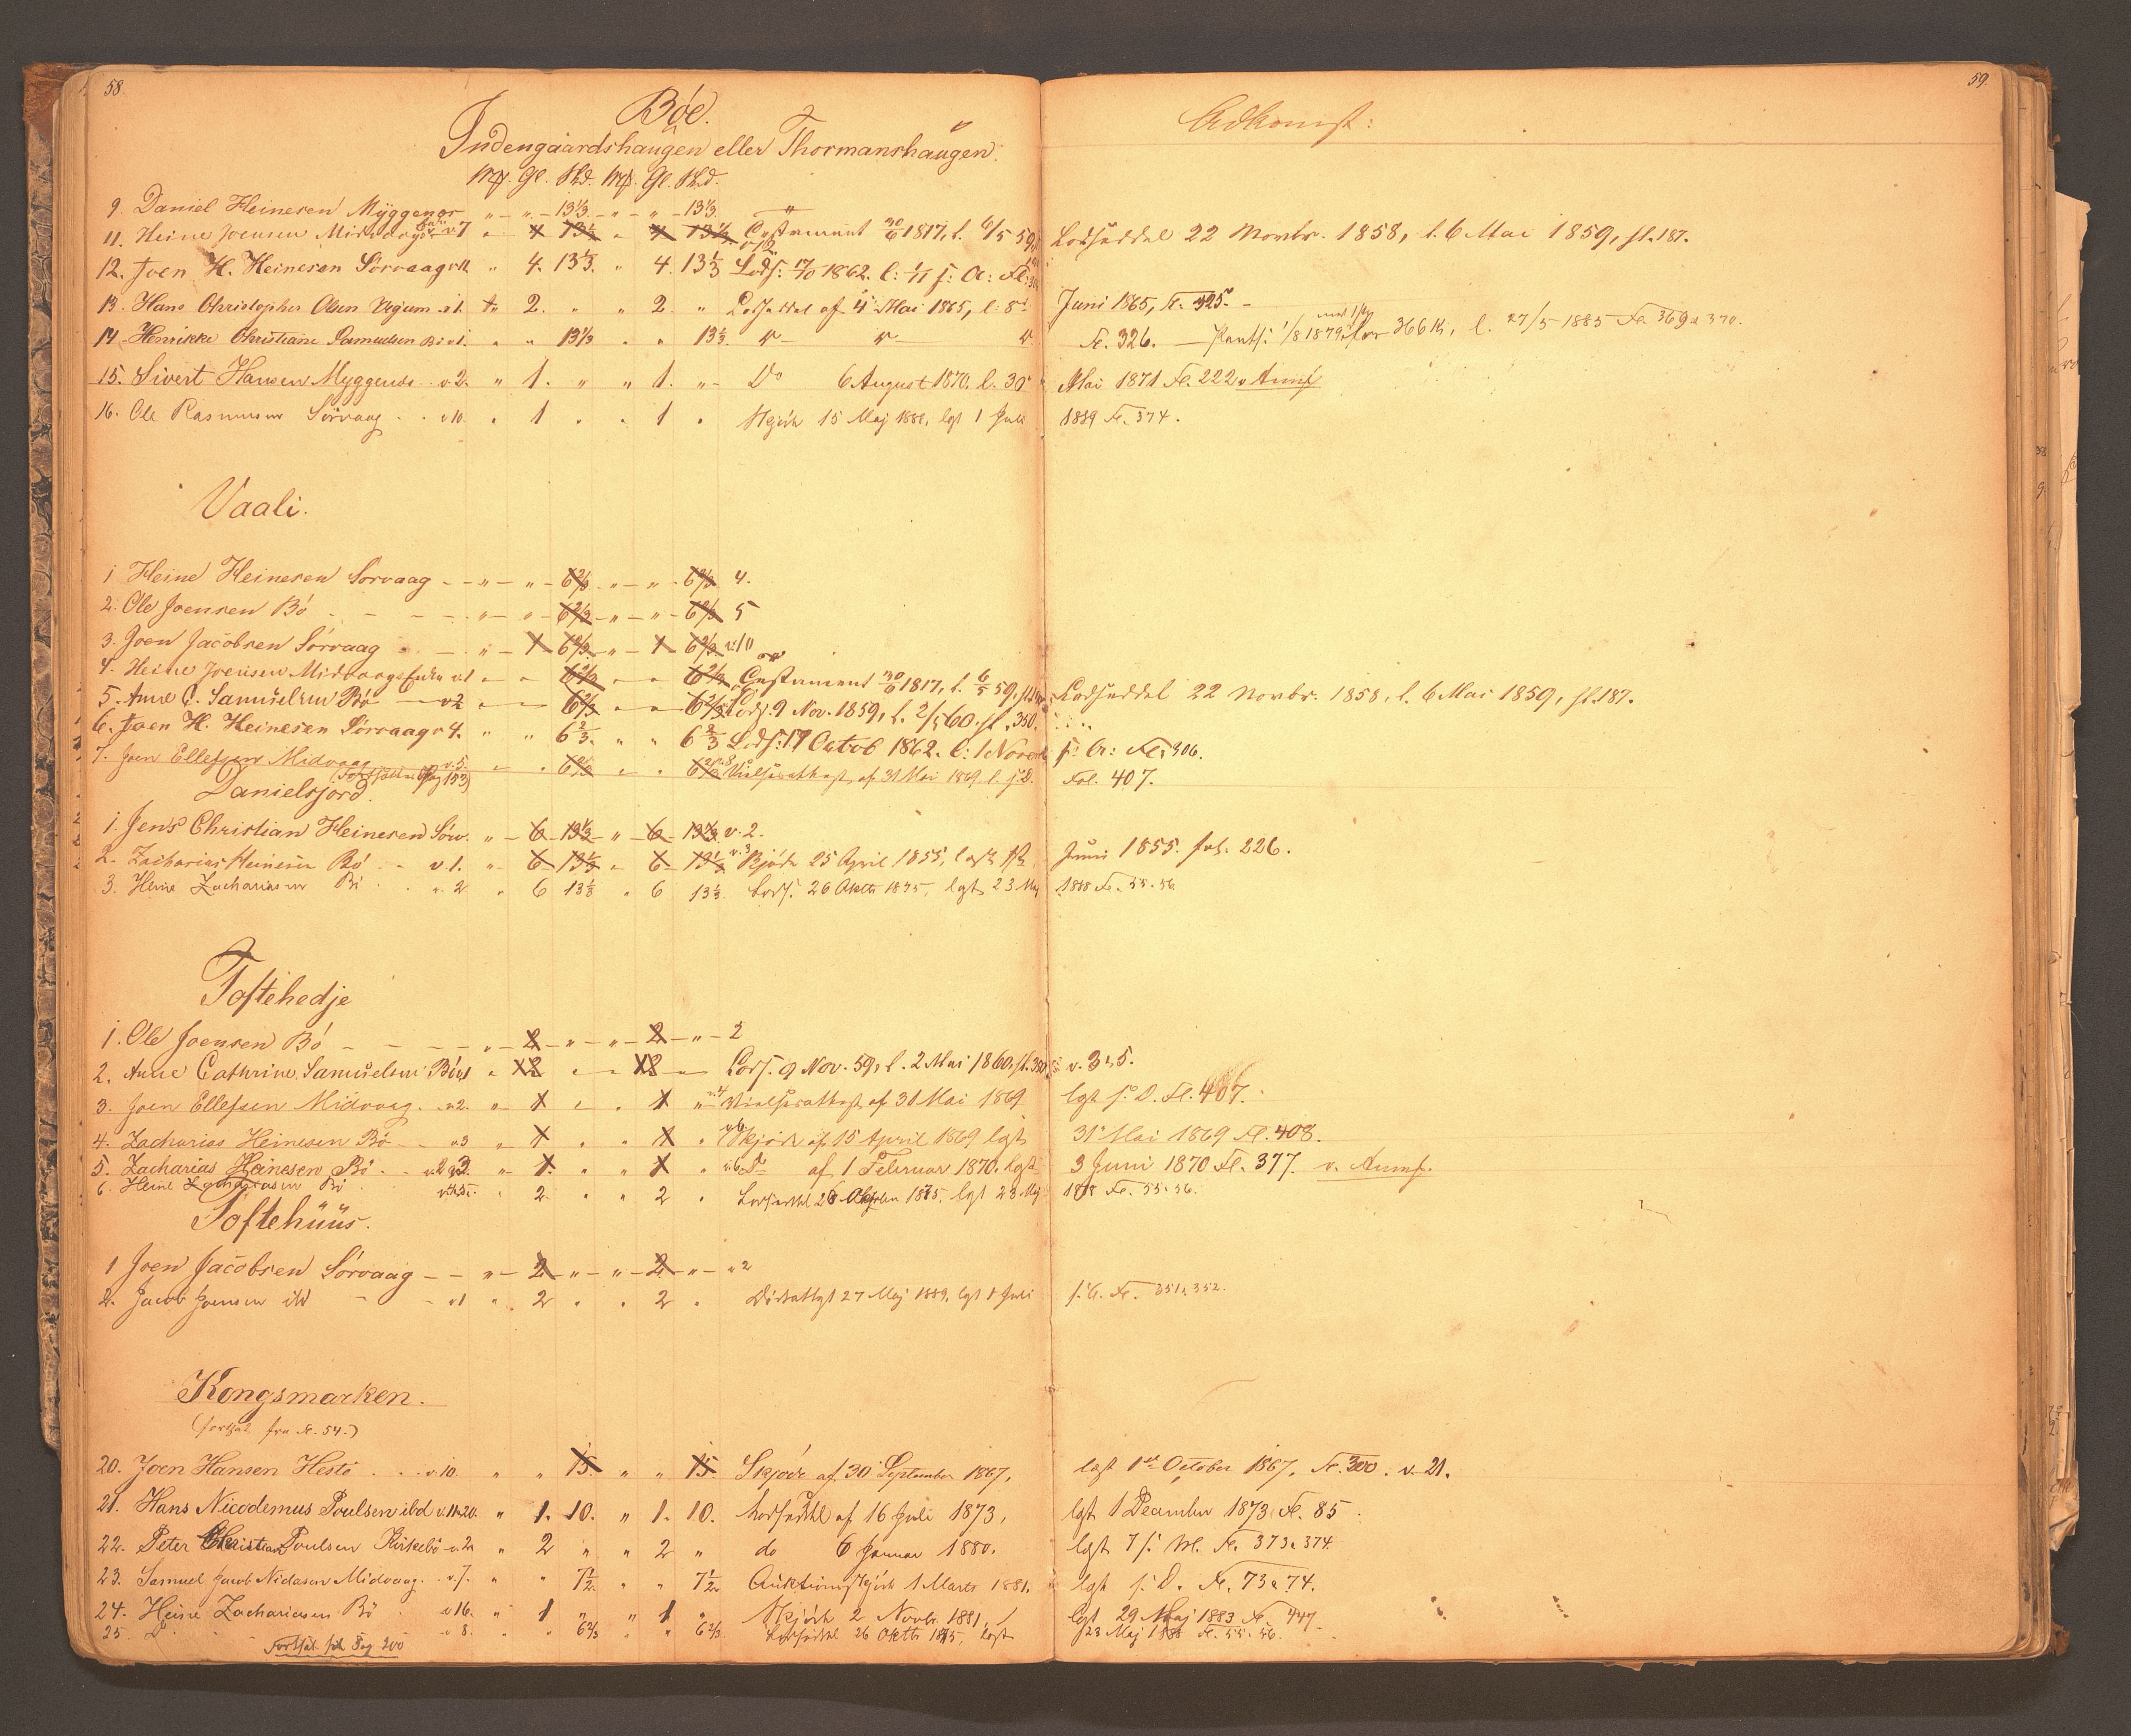 58
59
Bøe.
Adkomst:
Indengaardshaugen eller Thormanshaugen.
Mrk. Gl. Skd. Mrk. Gl. Skd.
9. Daniel Heinesen Myggenæs " " 13⅓ " " 13⅓ "
11. Heine Joensen Midvaag v. 7 " 4 13⅓ " 4 13⅓ Testament 30/6 1817, l. 6/5 59, Lodseddel 22 Novbr. 1858, l. 6 Mai 1859, fl. 187.
12. Joen H. Heinesen Sørvaag v. 11. " 4. 13⅓. " 4. 13⅓ Lods: 17/10 1862. l: 1/11 s: A: Fl:
13. Hans Christopher Olsen v. 1. 2. " " 2. " Lodseddel af 4 Mai 1865, l: 8d Juni 1865, Fl. 325.
14. Henrikke Christiane Samuelsen Bø v. 1. " " 13⅓ " " 13⅓. " " " Fl. 326. — Pants: 1/8 1879 for 366 Kr, l. 27/5 1885 Fl. 369 a 370.
15. Sivert Hansen Myggenæs v. 2. " 1. " " 1. " Do 6 August 1870. l. 30 Mai 1871 Fl. 222 v. Anmf
16. Ole Rasmussen Sørvaag v. 10. " 1 " " 1 " Skjøde 15 Maj 1888, lgt 1 Juli 1889 Fl. 374.
Vaali.
1 Heine Heinesen Sørvaag " " 6⅔ " " 6⅔ 4.
2. Ole Joensen Bø " " 6⅔ " " 6⅔ 5
3. Joen Jacobsen Sørvaag " 1 6⅔ " 1 6⅔ v. 10
4. Heine Joensen Midvaag v. 1 " " 6⅔ " " 6⅔ Testament 30/6 1817, l. 6/5 59, Lodseddel 22 Novbr. 1858, l. 6 Mai 1859, fl. 187.
5. Anne C. Samuelsen Bø v. 2 " " 6⅔ " " 6⅔ Lods. 9 Nov. 1859, l. 2/5 60. fl. 350.
6. Joen H. Heinesen Sørvaag v. 4. " " 6⅔. " " 6⅔ Lods: 17 Octob 1862. l: 1 Novemb s: A: Fl: 306.
7. Joen Ellefsen Midvaag v. 5. " " 6⅔ " " 6⅔ Vielsesattest af 31 Mai 1869 l. s. D. Fol. 407.
Danielsjord.
1. Jens Christian Heinesen Sørv. " 6 13⅓ " 6 13⅓ v. 2.
2. Zacharias Heinesen Bø v. 1. " 6 13⅓ " 6 13⅓ v. 3 Skjøde 25 April 1855, Juni 1855. fol. 226.
3. Heine Zachariasen Bø v. 2 " 6 13⅓ " 6 13⅓ Lods. 26 Oktb 1875, lgt 23 Maj 1888 Fl. 55-56
Toftehedje
1. Ole Joensen Bø " 2 " " 2 " 2
2. Anne Cathrine Samuelsen Bø v. 1 " 2 " 2 " Lods. 9 Nov. 59, l. 2 Mai 1860, fl. 350 v. 3, 5.
3. Joen Ellefsen Midvaag. v. 2. " 1 " " 1 " Vielsesattest af 31 Mai 1869 lgt s. D. Fl. 407.
4. Zacharias Heinesen Bø v. 3 " 1 " " 1 " v. 6 Skjøde af 15 April 1869 lgt 31 Mai 1869 Fl. 408.
5. Zacharias Heinesen Bø v. 2 " 1. " " 1 " v. 6. Do af 1 Februar 1870. lgt 3 Juni 1870 Fl. 377. v. Anmf.
6. Heine Zachariasen Bø " 2 " " 2 " Lodseddel 26 Oktober 1875, lgt 23 Maj 1888 Fl. 55-56.
Toftehuus.
1 Joen Jacobsen Sørvaag " 2 " " 2 " v 2
2. Jacob Joensen ibd v. 1 " 2 " " 2 " 27 Maj 1889, lgt 1 Juli s. A. Fl. 351 a 352.
Kongsmarken.
(fortsat fra Fl. 54.)
20. Joen Hansen Hestø v. 10. " " 15. " " 15 Skjøde af 30 September 1867, lagt 1st October 1867, Fl. 300. v. 21.
21. Hans Nicodemus Poulsen ibd v. 11 20. " 1. 10. " 1. 10. Lodseddel af 16 Juli 1873, lgt 1 December 1873 Fl. 85.
22. Peter Christian Poulsen Kirkebø v. 2 " 2 " " 2 " do 6 Januar 1880. lgt 7 s. M. Fl. 373 a 374
23. Samuel Jacob Nidasen Midvaag. v. 7. " " 7½. " " 7½ Auktionsskjøde 1 Marts 1881. lgt s. D. Fl. 73 a 74.
24. Heine Zachariasen Bø v. 16. " 1 " " 1 " Skjøde 2 Novbr 1881, lgt 29 Maj 1883 Fl. 447
25. Do v. 8. " " 6⅔ " " 6⅔ Lodseddel 26 Oktb 1875, lgt 23 Maj 1888 Fl. 55-56.
Fortsat paa Pag 200